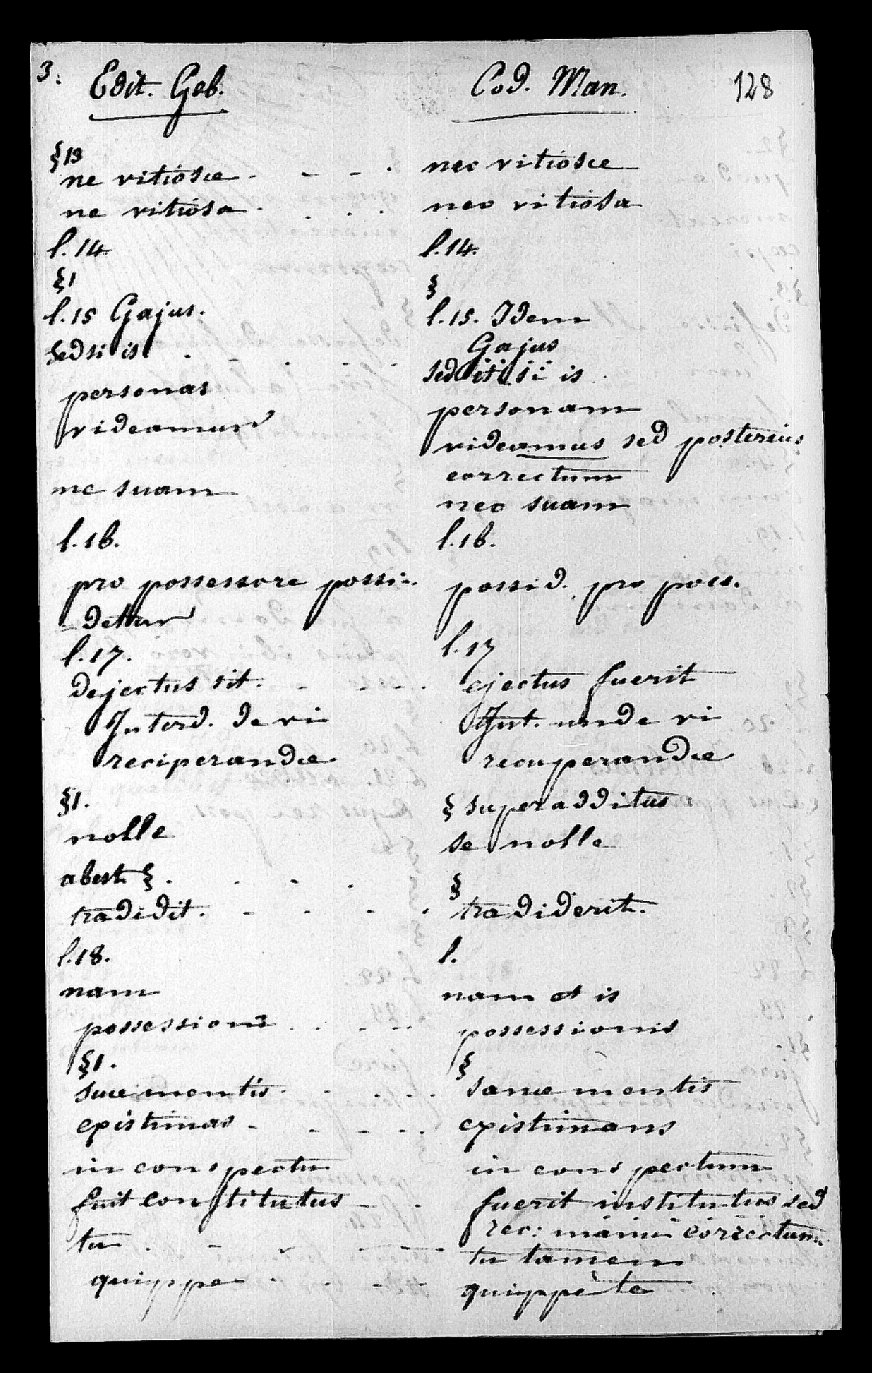 3. Edit. Geb. Cod. Man. 128
§13
ne vitiosae - - - nec vitiosae
ne vitiosa nec vitiosa
l. 14. l. 14.
§1 §
l. 15 Gajus. l. 15. Idem
Gajus
sed si is sed et si is
personas personam
videamur videamus sed posterius
correctum
ne suam nec suam
l. 16. l. 16.
pro possessore possi- possid. pro poss.
detur
l. 17. l. 17
dejectus sit. ejectus fuerit
Interd. de vi Int. unde vi
reciperandae recuperandae
§1. § superadditus
nolle se nolle
abest § §
tradidit. - - - tradiderit.
l. 18. l.
nam nam et is
possessionis possessionis
§1. §
suae mentis sanae mentis
existimas - - - existimans
in conspectu in conspectum
fuit constitutus fuerit institutus sed
rec: manu correctum
tu tu tamen
quippe quippe te